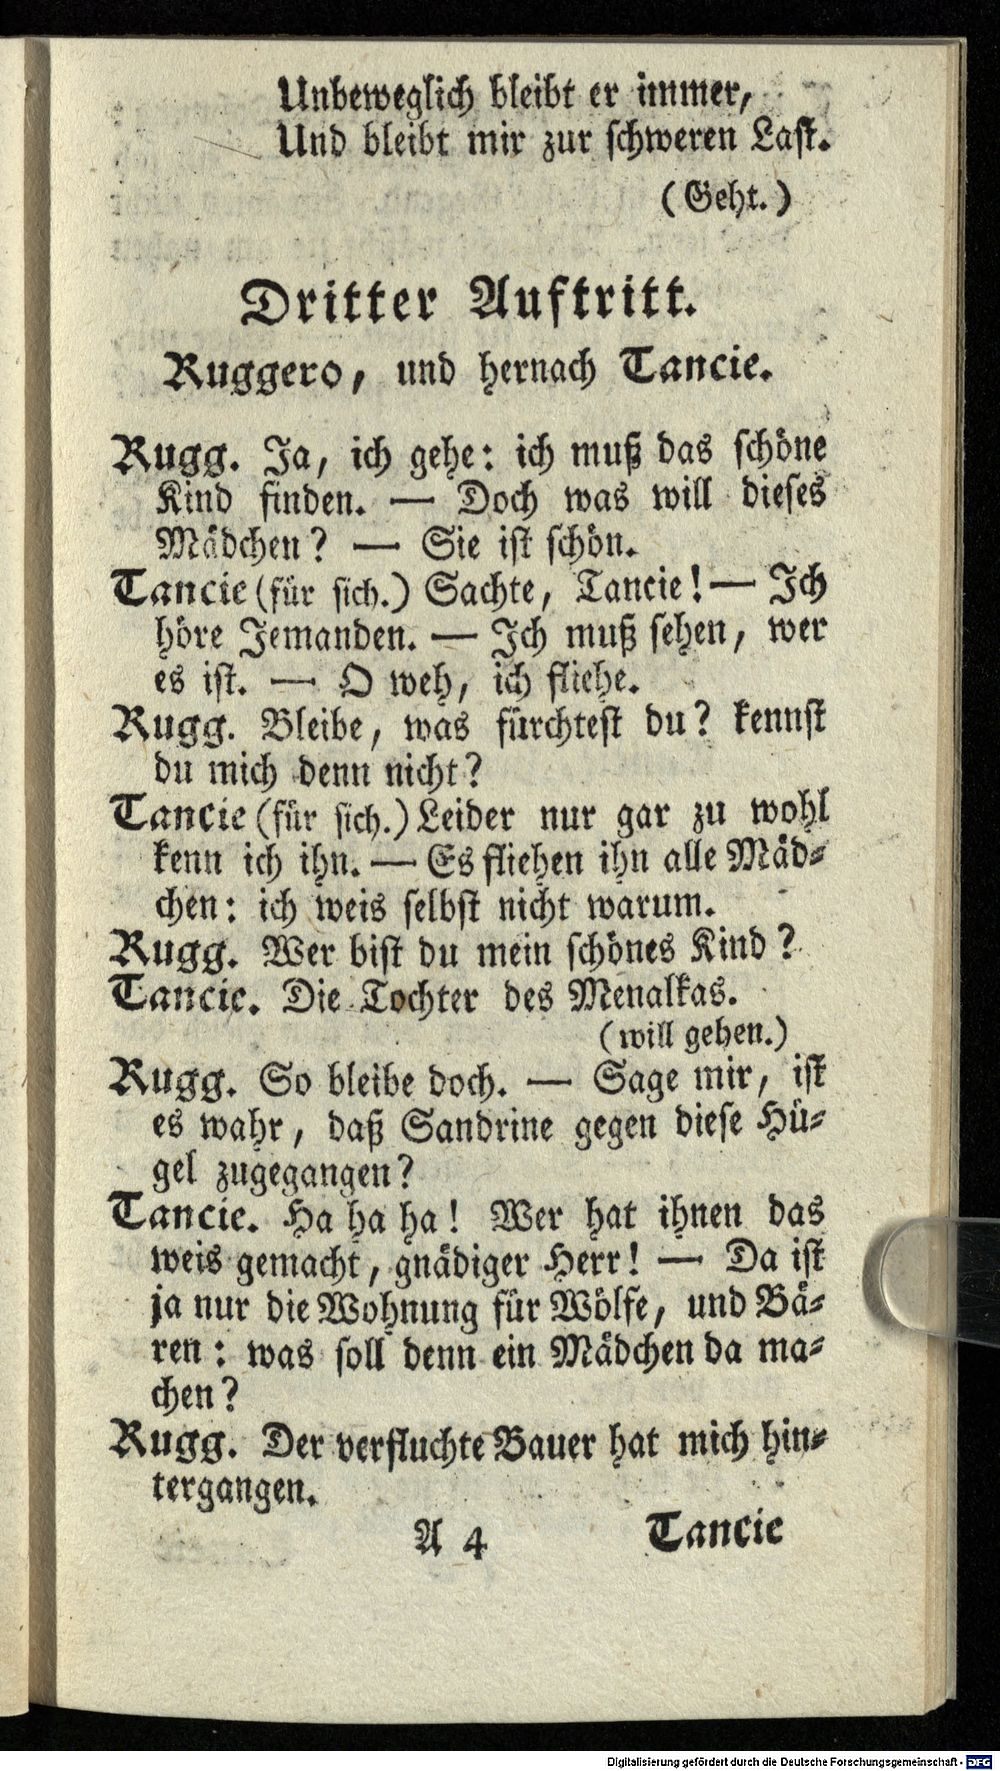 Unbeweglich bleibt er immer,
Und bleibt mir zur schweren Last.
(Geht.)
Dritter Auftritt.
Ruggero, und hernach Tancie.
Rugg. Ja, ich gehe: ich muß das schöne
Kind finden. — Doch was will dieses
Mädchen? — Sie ist schön.
Tancie (für sich.) Sachte, Tancie! — Ich
höre Jemanden. — Ich muß sehen, wer
es ist. — O weh, ich fliehe.
Rugg. Bleibe, was fürchtest du? kennst
du mich denn nicht?
Tancie (für sich.) Leider nur gar zu wohl
kenn ich ihn. — Es fliehen ihn alle Mäd-
chen: ich weis selbst nicht warum.
Rugg. Wer bist du mein schönes Kind?
Tancie. Die Tochter des Menalkas.
(will gehen.)
Rugg. So bleibe doch. — Sage mir, ist
es wahr, daß Sandrine gegen diese Hü-
gel zugegangen?
Tancie. Ha ha ha! Wer hat ihnen das
weis gemacht, gnädiger Herr! — Da ist
ja nur die Wohnung für Wölfe, und Bä-
ren: was soll denn ein Mädchen da ma-
chen?
Rugg. Der verfluchte Bauer hat mich hin-
tergangen.
A 4 Tancie
Digitalisierung gefördert durch die Deutsche Forschungsgemeinschaft - DFG